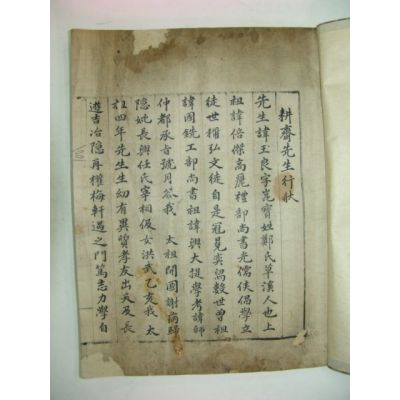 耕齋先生行狀
先生諱玉良字崑寶姓鄭氏草溪人也上
祖諱倍傑高麗禮部尚書光儒侯倡學立
徒世稱弘文徒自是冠冕奕潟數世曾祖
諱國銑工部尚書祖諱興大提學考諱師
仲都承旨號月谷我 太祖開國謝病歸
隱妣長興任氏宰相伋女洪武乙亥我 太
祖四年先生生幼有異質孝友出天及長
遊吉冶隱再權梅軒遇之門篤志力學自